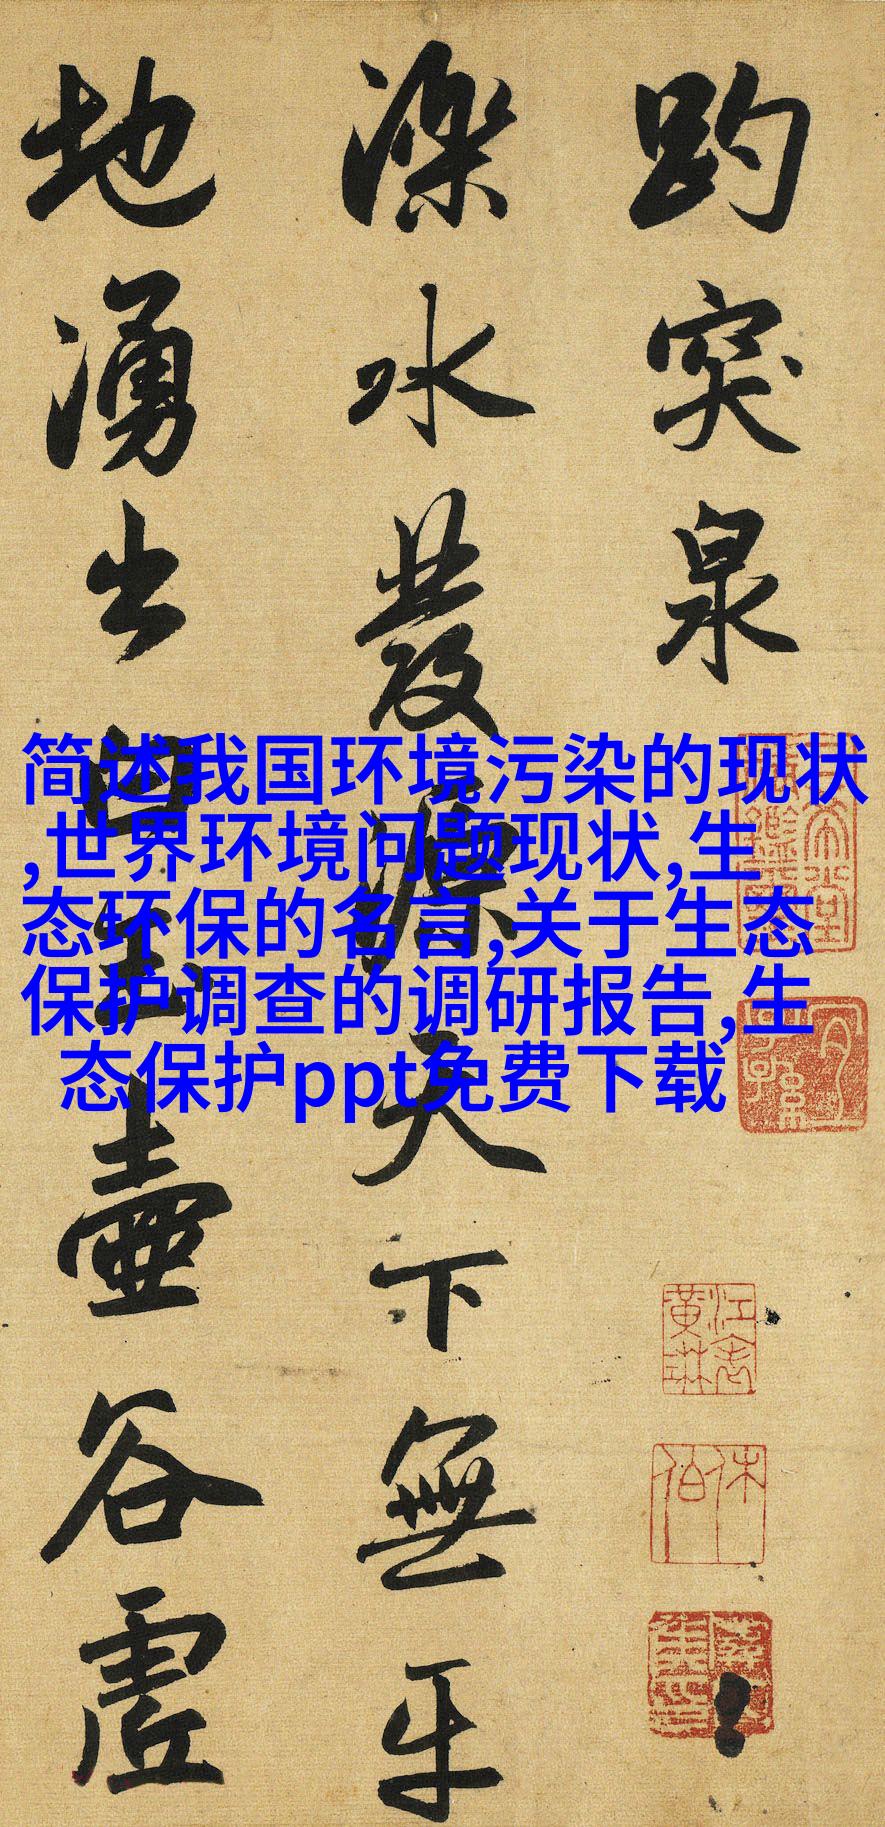 趵突泉
濼水發源天下無平
地湧出白玉壺谷虛
简述我国环境污染的现状
,世界环境问题现状,生
态环保的名言,关于生态
保护调查的调研报告,生
态保护ppt免费下载
江表黃琳
休伯